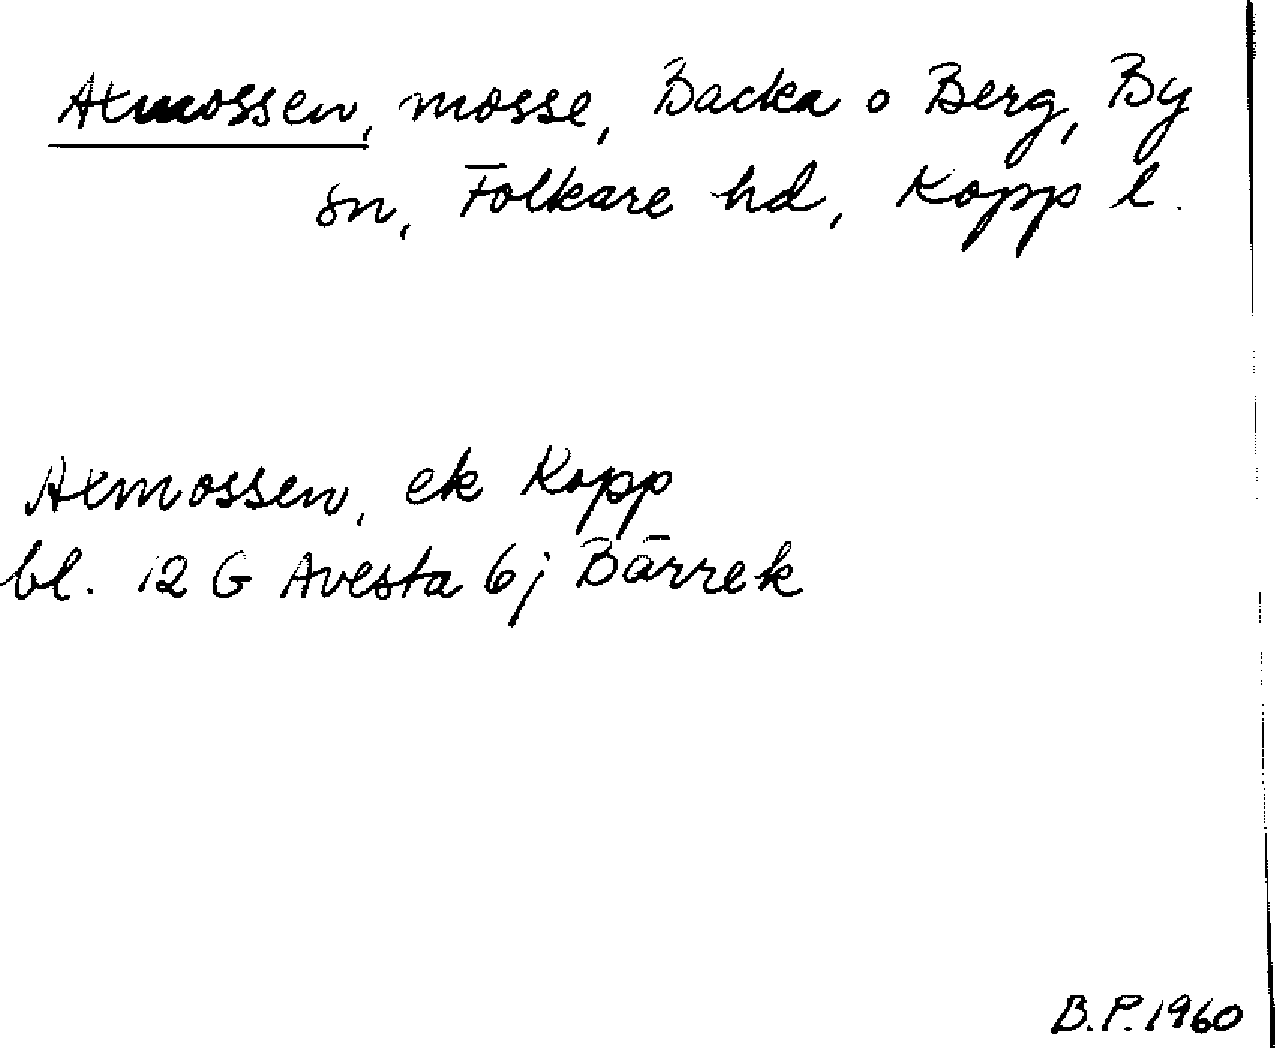 Axmossen, mosse, Backa o Berg, By
sn, Folkare hd, Kopp l.
Axmossen, ek Kopp
bl. 12 G Avesta 6j Bärrek
B.P. 1960